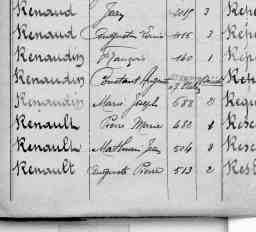 Renaud Jean 2015 3 Repe
Renaud Augustin Louis 415 3 Repe
Renaudin François 160 1 Rep
Renaudin Constant Auguste Rep
Renaudin Marie Joseph 688 2 Requ
Renault Pierre Marie 480 1 Rese
Renault Mathurin Jean 504 8 Rese
Renault Auguste Pierre 513 2 Rest